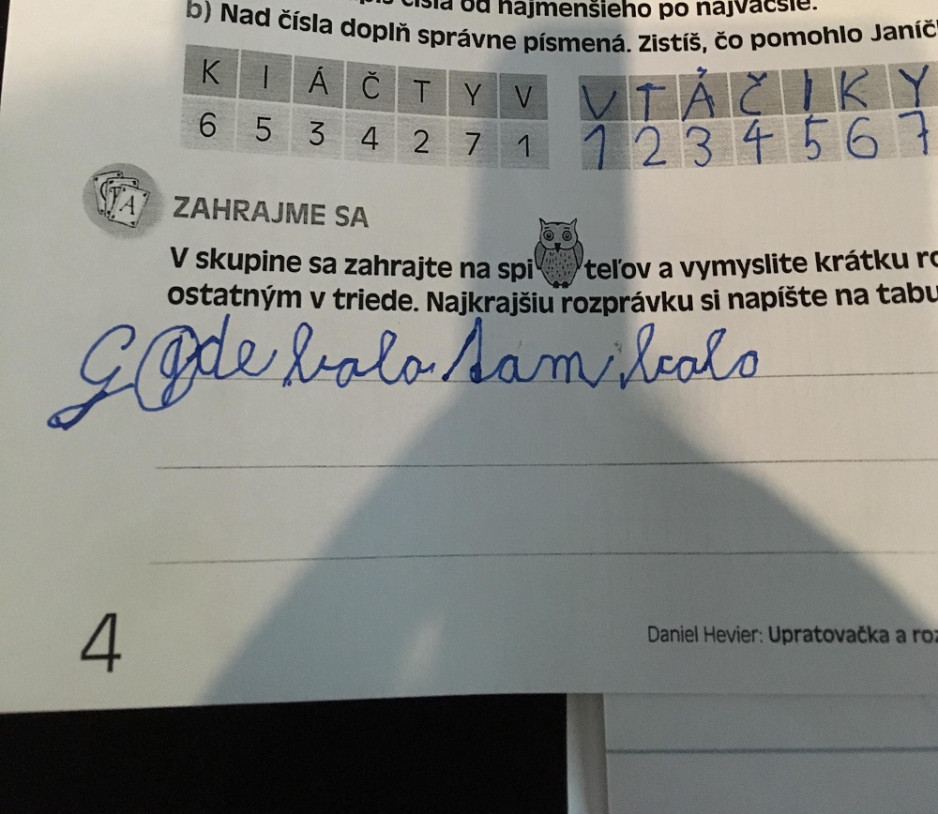 čísla od najmenšieho po najväčšie.
b) Nad čísla doplň správne písmená. Zistíš, čo pomohlo Janíč
K I Á Č T Y V V T Á Č I K Y
6 5 3 4 2 7 1 1 2 3 4 5 6 7
ZAHRAJME SA
V skupine sa zahrajte na spi teľov a vymyslite krátku ro
ostatným v triede. Najkrajšiu rozprávku si napíšte na tabu
de bolo tam bolo
4
Daniel Hevier: Upratovačka a roz